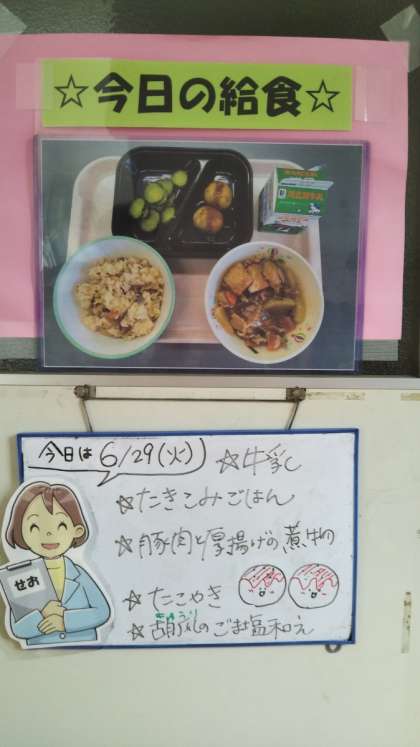 ☆今日の給食☆
今日は 6/29(火)
☆牛乳
☆たきこみごはん
☆豚肉と厚揚げの煮物
☆たこやき
きゅうり
☆胡瓜のごま塩和え
せお